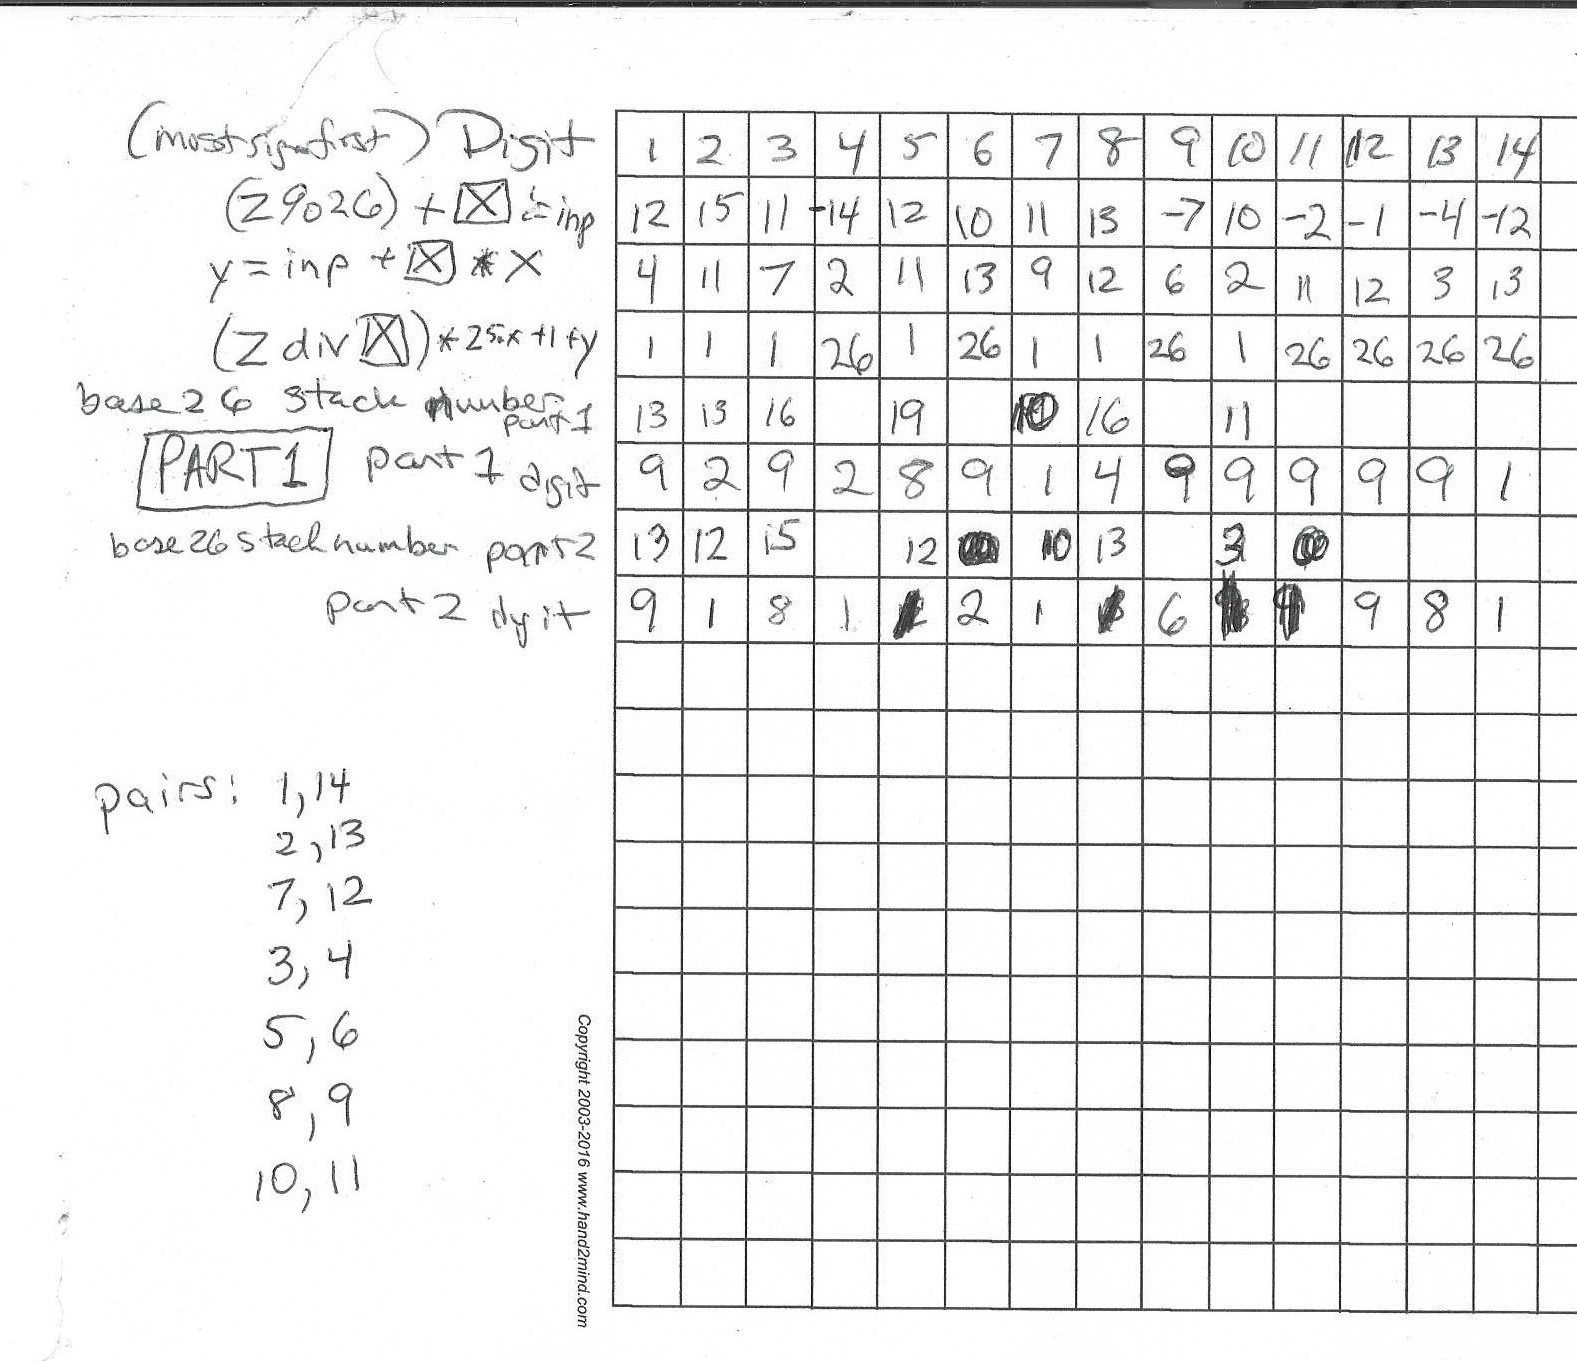 (most sign first) Digit 1 2 3 4 5 6 7 8 9 10 11 12 13 14
(Z % 26) + X = inp 12 15 11 -14 12 10 11 13 -7 10 -2 -1 -4 -12
y = inp + X * X 4 11 7 2 11 13 9 12 6 2 11 12 3 13
(Z div X) * 25x+1 +y 1 1 1 26 1 26 1 1 26 1 26 26 26 26
base 26 stack number part 1 13 13 16 19 10 16 11
PART 1 part 1 digit 9 2 9 2 8 9 1 4 9 9 9 9 9 1
base 26 stack number part 2 13 12 15 12 10 13 3
part 2 digit 9 1 8 1 2 1 6 9 8 1
pairs: 1,14
2,13
7,12
3,4
5,6
8,9
10,11
Copyright 2003-2016 www.hand2mind.com